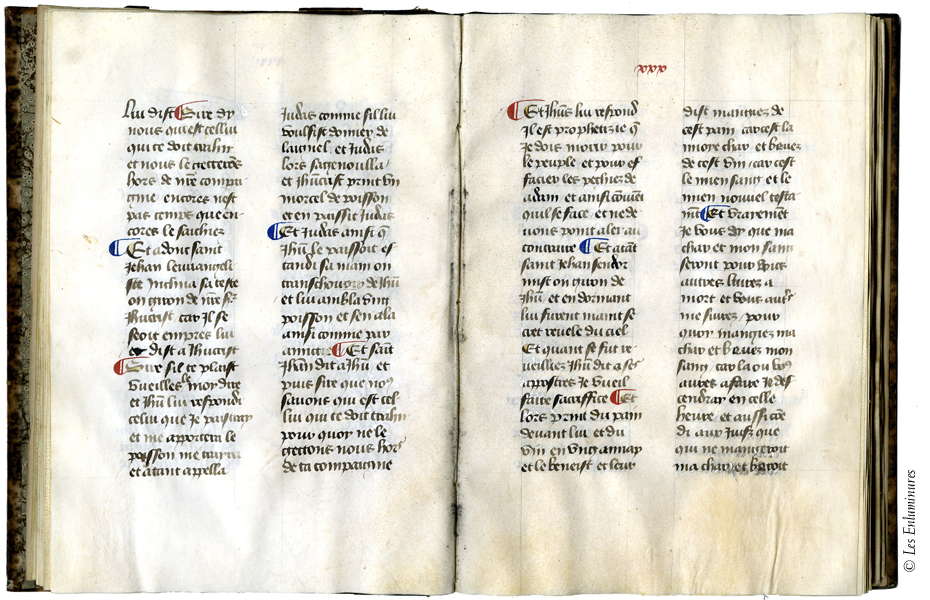 luy dist ¶ Sire dy
nous qui est celluy
qui te doit trahir
et nous le getterõs
hors de nr̃e compai
gnie encores nest
pas temps que en
cores le saichiez
¶ Et adont saint
Jehan leuuangeli
ste inclina sa teste
on giron de nr̃e sr̃
Jhucrist car il se
seoit empres luy
et dist a Jhucrist
¶ Sire sil te plaist
vueilles le moy dire
et Jhũ luy respondi
celuy que je paistray
et me apportera le
poisson me trayra
et atant appella
Judas comme sil luy
voulsist donner de
laignel et Judas
lors sagenoulla
et Jhucrist print vn
morcel de poisson
et en paissit Judas
¶ Et Judas ainsi q̃
Jhũ le paissoit es
tandi sa main on
tranchouoro de Jhũ
et luy ambla vng
poisson et sen ala
ainsi comme par
¶ Et saint
Jehan dit a Jhũ et
puis sire que noꝰ
sauons qui est cel
luy qui te doit trahir
pour quoy ne le
gettons nous hors
de ta compaignie
xxx
¶ Et Jhũs luy respond
Il est prophetizie q̃
Je dois morir pour
le peuple et pour ef
facier les pechiez de
adam et ainsi conuiẽt
quil se face et ne de
uons point aler au
contraire ¶ Et atant
saint Jehan sendor
mist on giron de
Jhũ et en dormant
luy furent maint se
cret reuele du ciel
Et quant se fut re
veilliez Jhũ dit a ses
appostres Je vueil
faire sacriffice ¶ Et
lors print du pain
deuant luy et du
vin en vng
et le beneist et leur
dist manguez de
cest pain car cest la
moye char et beuez
de cest vin car cest
le mien sang et le
mien nouuel testa
mẽt ¶ Et vrayement
Je vous dy que ma
char et mon sang
seront pour vous
autres liurez a
mort et vous autr̃s
me suiuez pour
quoy mangiez ma
char et beuez mon
sang car la ou voꝰ
aurez a faire Je des
cendray en celle
heure et aussi cõe
di aux Juifz que
qui ne mangeroit
ma char et buroit
© Les Enluminures